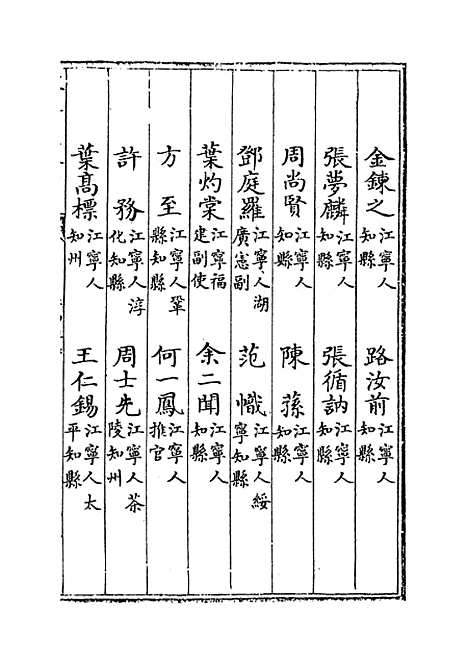 金鍊之江寧人知縣　路汝前江寧人知縣
張夢麟江寧人知縣　張循訥江寧人知縣
周尚賢江寧人知縣　陳蓀江寧人知縣
鄧庭羅江寧人湖廣憲副　范幟江寧人綏寧知縣
葉灼棠江寧福建副使　余二聞江寧人知縣
方至江寧人鞏縣知縣　何一鳳江寧人推官
許務江寧人淳化知縣　周士先江寧人茶陵知州
葉高標江寧人知州　王仁錫江寧人太平知縣